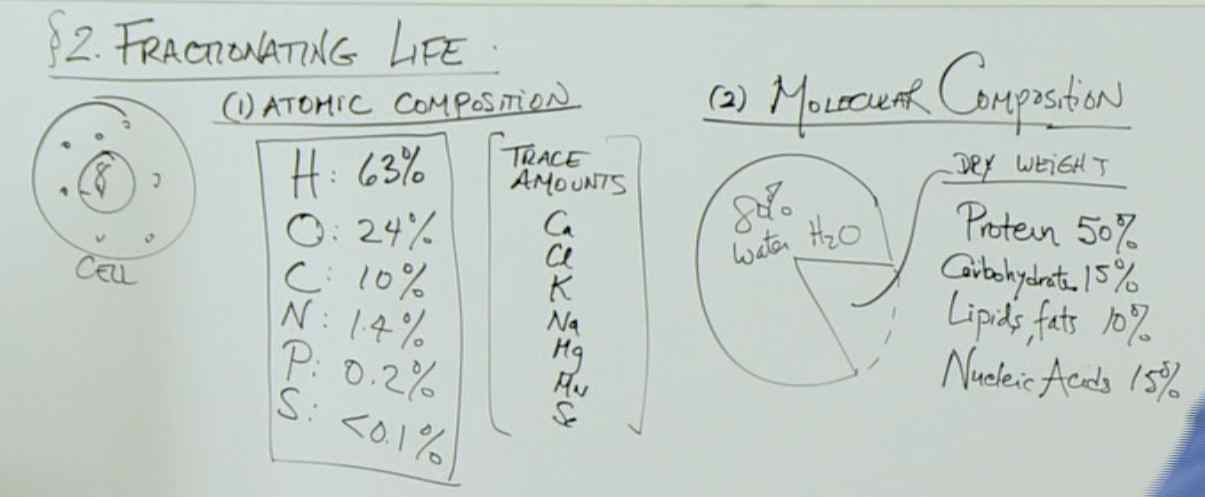 §2. FRACTIONATING LIFE.
CELL
(1) ATOMIC COMPOSITION
H: 63%
O: 24%
C: 10%
N: 1.4%
P: 0.2%
S: <0.1%
TRACE
AMOUNTS
Ca
Cl
K
Na
Mg
Mn
Se
(2) MOLECULAR COMPOSITION
80%
water H₂O
DRY WEIGHT
Protein 50%
Carbohydrate 15%
Lipids, fats 10%
Nucleic Acids 15%